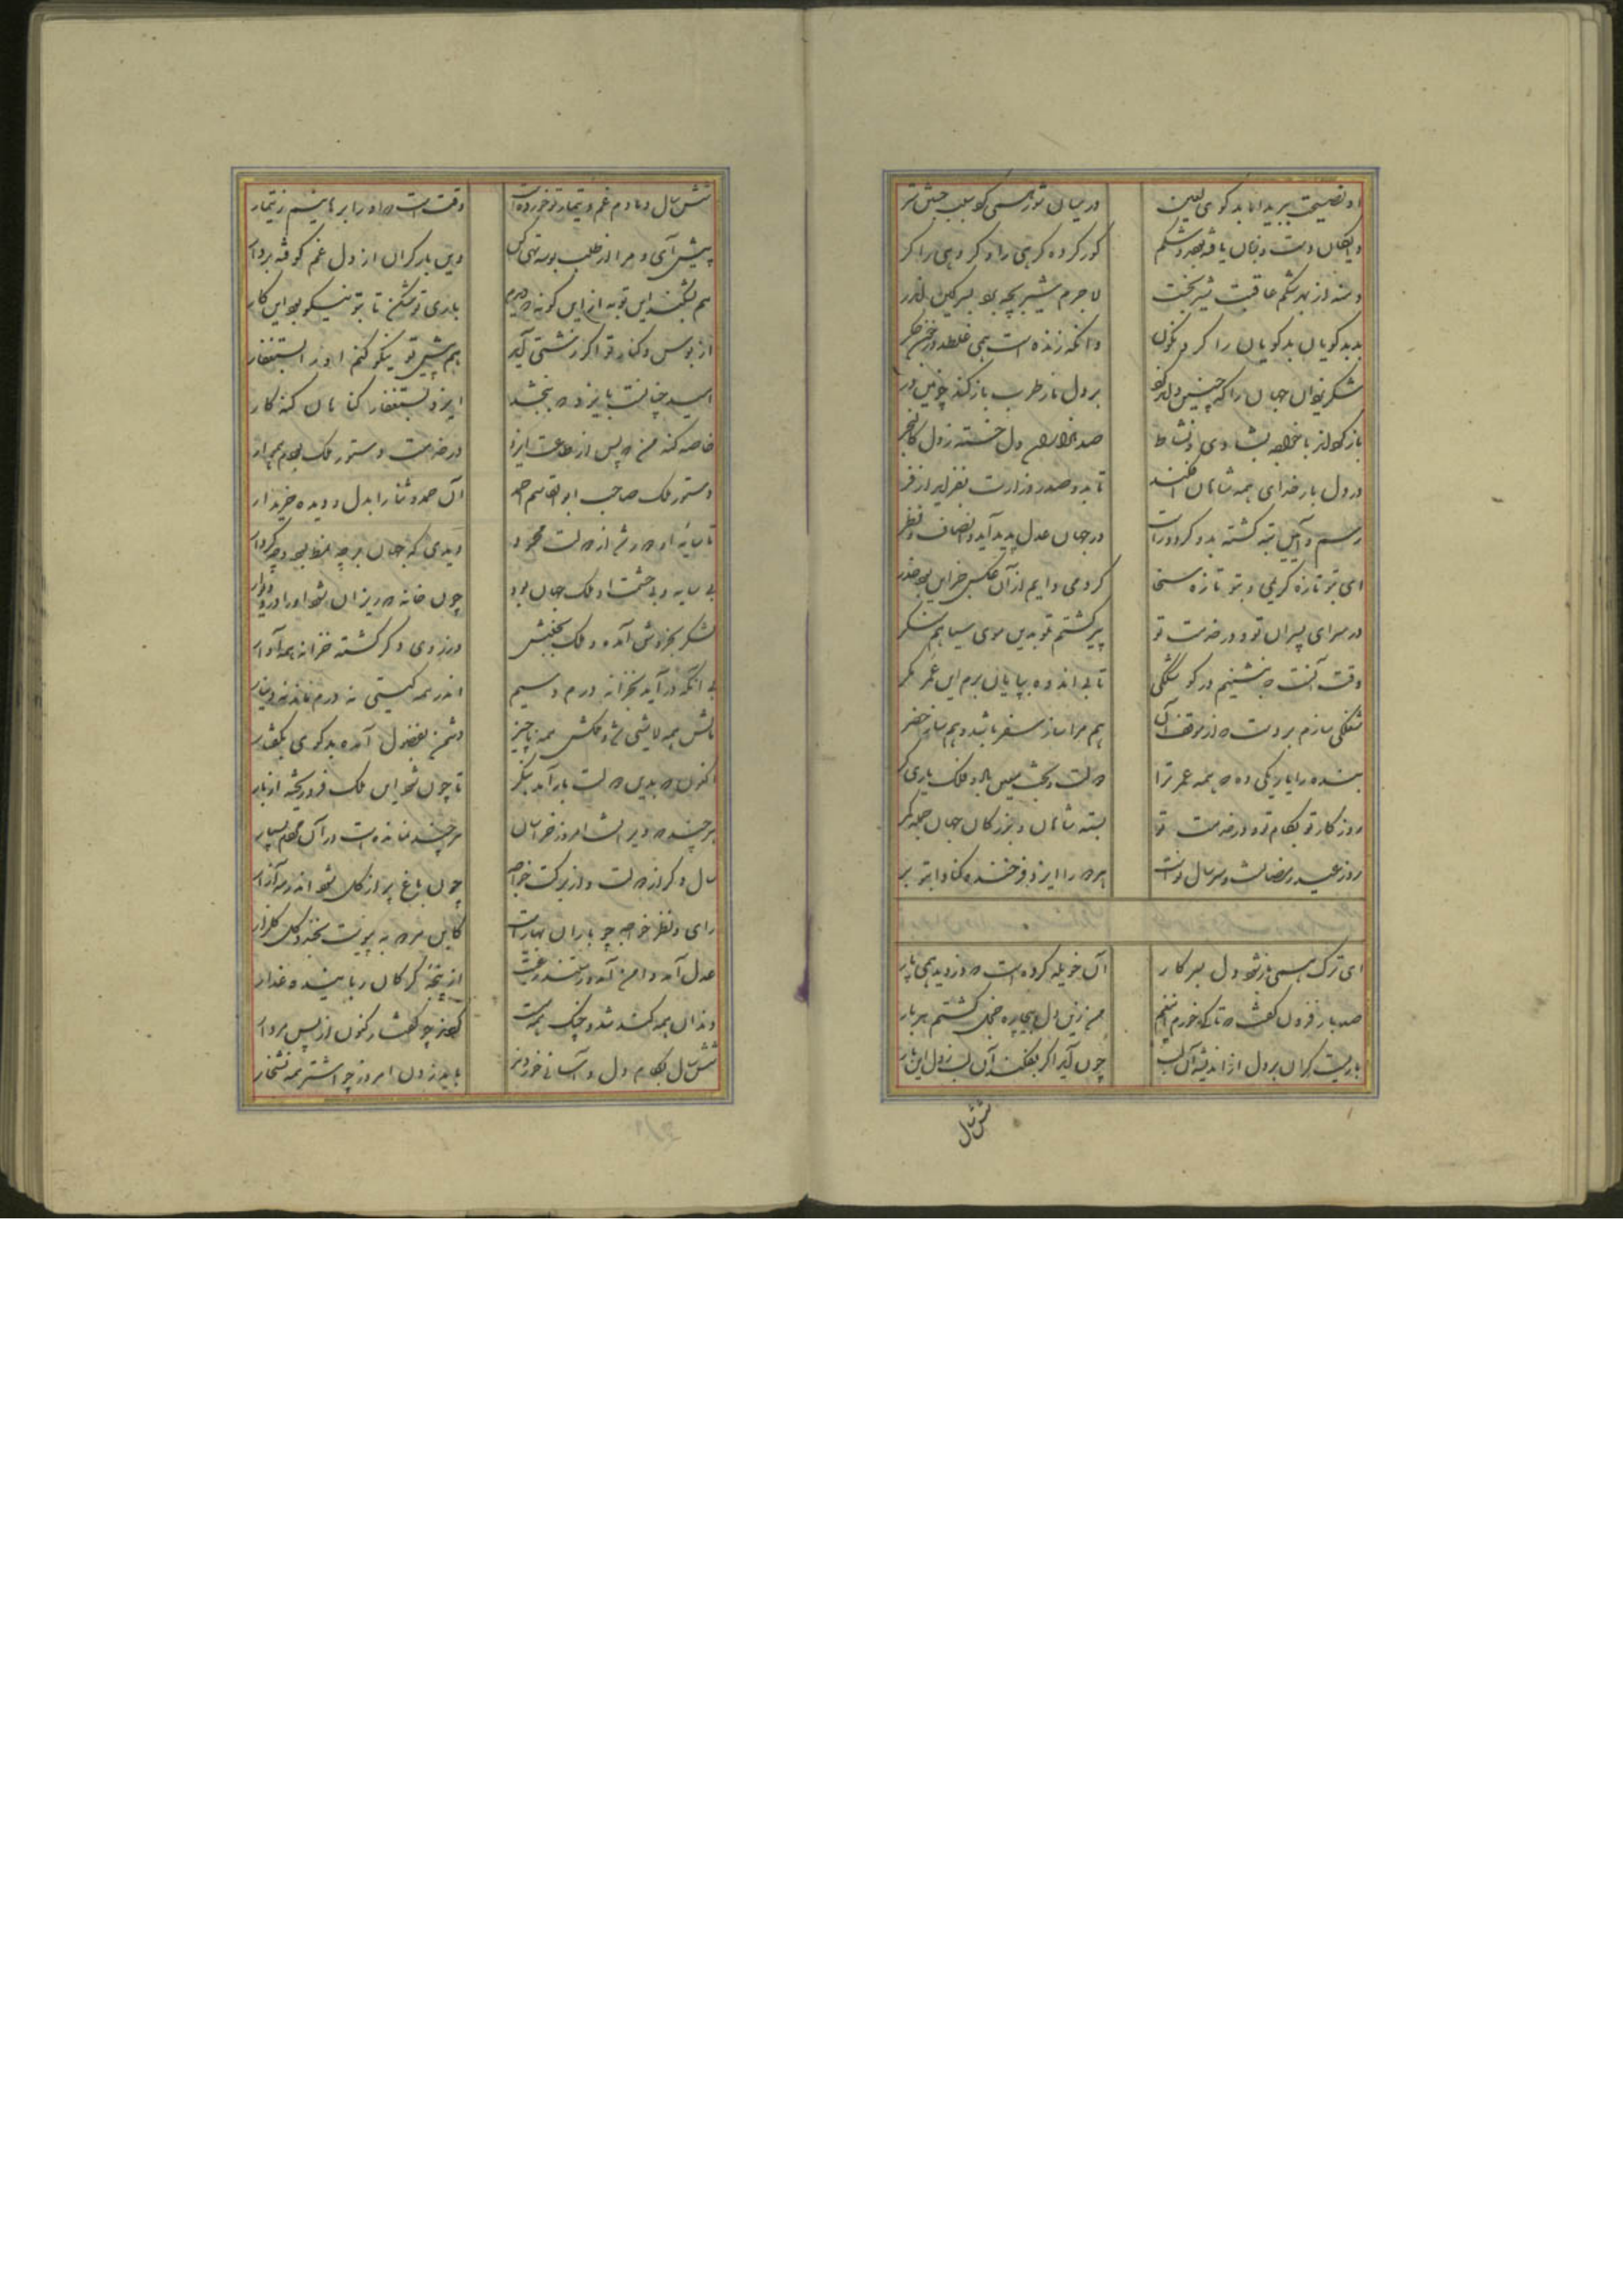 او نصیحت بپرید اما بدگوی لعین در میان تو همی گوید
دست و شکم کور کرده کرهی را و کر و هی را کر
شکم عاقبت شیر بخت لاجرم شیر بچه
بد بدگویان بدگویان را کرد نگون وانکه زنده است همی غلطد در خون جگر
شکر یزدان جهان را که چنین بر دل ناز طرب باز کند چونین در
باز کردند با خواجه بشادی و نشاط صد هزاران دل خسته ز دل
در دل بار خدای همه شاهان افکند تا بدو صدر وزارت بفزاید از فر
رسم و آیین تبه گشته بدو گردد راست در جهان عدل پدید آید و انصاف و نظر
ای بتو تازه کریمی و بتو تازه سخا کردمی دایم از آن مجلس
در سرای پسران تو و در خدمت تو پیر گشتم تو بدین موی سیاهم منگر
وقت آنست که بنشینم در گوشگکی تا بی اندوه بپایان برم این عمر مگر
شغلکی سازم بر دست که از موقف آن هم مرا ساز سفر باشد و هم ساز حضر
بنده را یاریکی ده که همه عمر ترا دولت و بخت معین باد و فلک یاری گر
روزگار تو بکام تو و در خدمت تو بسته شاهان و بزرگان جهان جمله کمر
روز عید رمضانست و سر سال نوست هر دو را ایزد فرخنده کناد ابتو بر
ای ترک همی باز شود دل بسر کار آن خویله کرده است که دزدید همی پار
صد بار فزون گفت که تا کی خورم این غم من زین دل بیچاره خجل گشتم هر بار
باریست گران بر دل از اندیشه آن لب چون آید اگر بفکند آن لب ز دل این بار
شش سال
شش سال دمادم غم و تیمار تو خورده است وقت است که او را برهانیم ز تیمار
پیش آی و مرا از طلب بوسه تهی کن وین بار گران از دل غم کوفته بردار
هم بشکند این توبه از این گونه که دیدم باری تو شکن تا بتو نیکو بود این کار
از بوس و کنار تو اگر زشتی آید هم پیش تو نیکو کنم او را باستغفار
امید چنانست بایزد که ببخشد ایزد باستغفار گناهان گنه کار
خاصه گنه من که پس از طاعت ایزد در خدمت دستور ملک بودم هموار
دستور ملک صاحب ابوالقاسم احمد آن حمد و ثنا را بدل و دیده خریدار
تا سایه او دور شد از دولت محمود دیدی که جهان بر چه نمط بود و چه کردار
بی سایه و بی حشمت او ملک جهان بود چون خانه که ریزان شود او را در و دیوار
لشکر بخروش آمده و ملک بجنبش دزدی و گر گشته خزانه همه آوار
بی آنکه در آید بخزانه درم و سیم اندر همه گیتی نه درم ماند نه دینار
مالش همه لاشی شد و ملکش همه ناچیز دشمن بفضول آمده بدگوی بگفتار
اکنون که بدین دولت باز آمد بنگر تا چون شود این ملک فرو ریخته از بار
هر چند که ویرانست امروز خراسان هر چند نمانده است در آن
سال دگر از دولت و از برکت خواجه چون باغ پر از گل شود اندر مه آزار
رای و نظر خواجه چو باران بهار است کاین هر دو بپیوست بخندد گل گلزار
عدل آمد و امن آمد و رستند رعیت از پنجه گرگان رباینده و غدار
دندان همه کند شد و چنگ همه سست گشتند چو کفتار کنون از پس مردار
شش سال بکام دل و آسانی خوردند باید زدن امروز چو اشتر همه نشخار